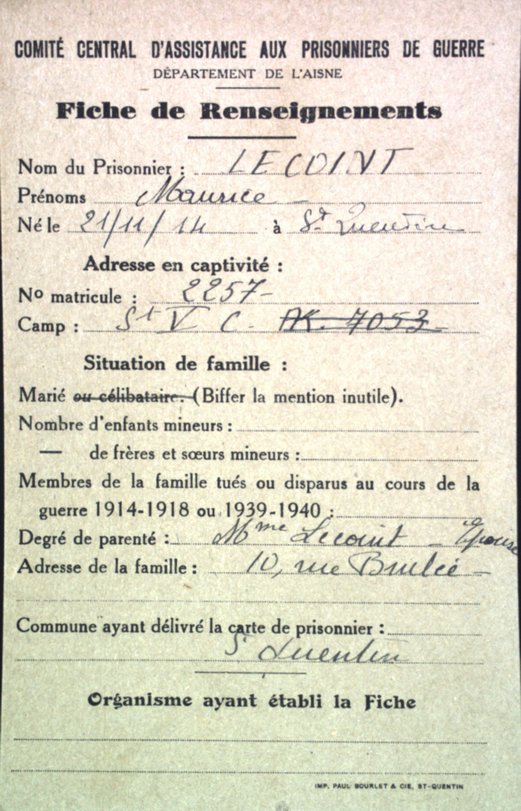 COMITÉ CENTRAL D'ASSISTANCE AUX PRISONNIERS DE GUERRE
DÉPARTEMENT DE L'AISNE
Fiche de Renseignements
Nom du Prisonnier : LECOINT
Prénoms Maurice
Né le 21/11/14 à St Quentin
Adresse en captivité :
No matricule : 2257
Camp : St V C. AK. 7053
Situation de famille :
Marié ou célibataire. (Biffer la mention inutile).
Nombre d'enfants mineurs :
— de frères et sœurs mineurs :
Membres de la famille tués ou disparus au cours de la
guerre 1914-1918 ou 1939-1940 :
Degré de parenté : Mme Lecoint - Épouse
Adresse de la famille : 10, rue Brulée
Commune ayant délivré la carte de prisonnier :
St Quentin
Organisme ayant établi la Fiche
IMP. PAUL BOURLET & CIE, ST-QUENTIN